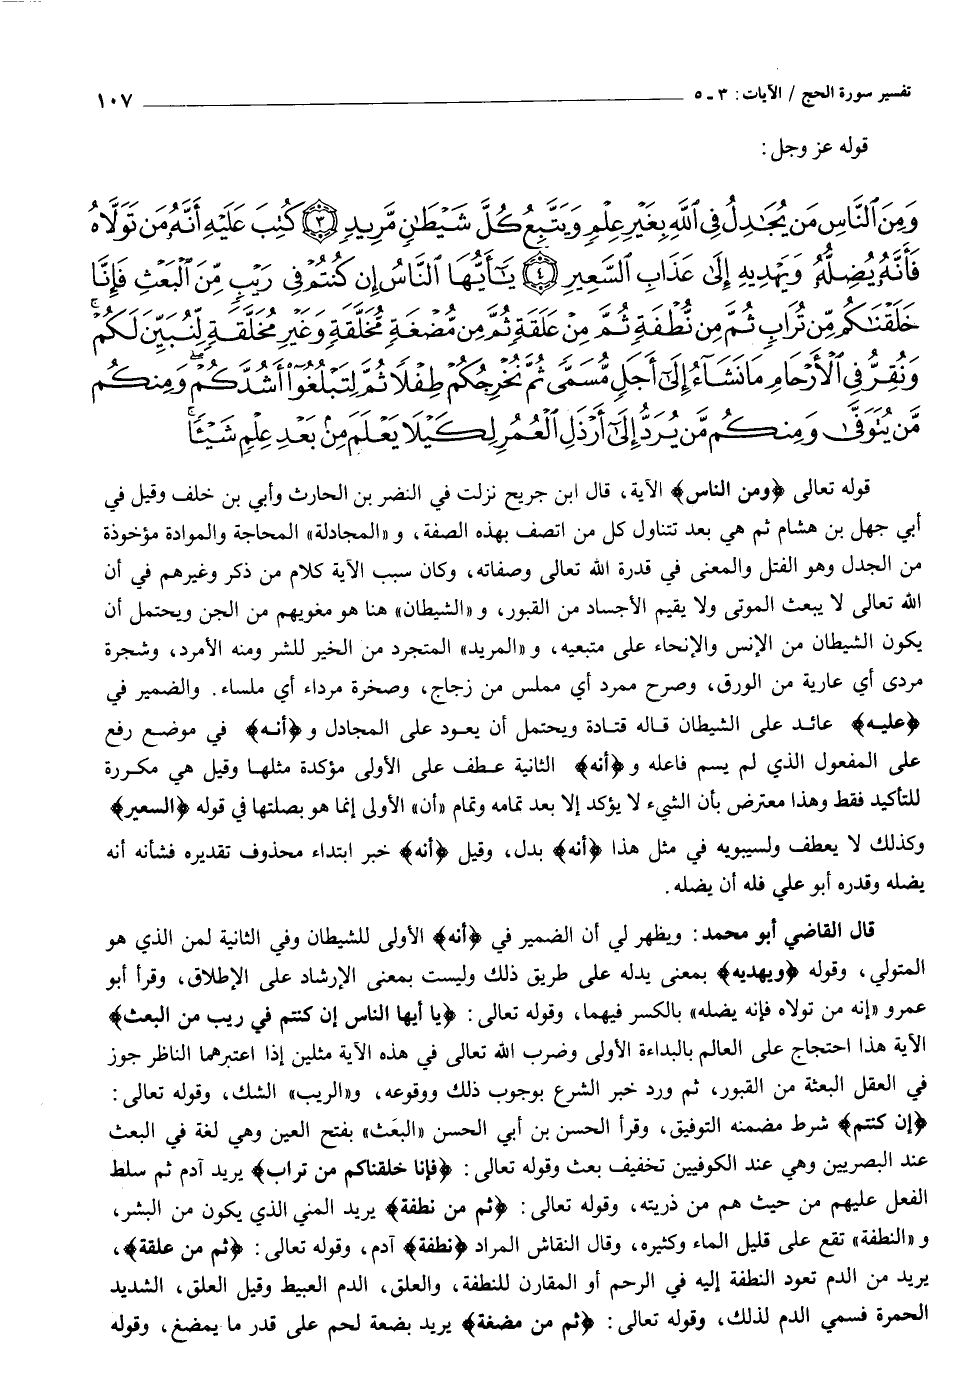 تفسير سورة الحج / الآيات: ٣ ـ ٥ ١٠٧
قوله عز وجل:
وَمِنَ ٱلنَّاسِ مَن يُجَٰدِلُ فِى ٱللَّهِ بِغَيْرِ عِلْمٍ وَيَتَّبِعُ كُلَّ شَيْطَٰنٍ مَّرِيدٍ ﴿٣﴾ كُتِبَ عَلَيْهِ أَنَّهُۥ مَن تَوَلَّاهُ
فَأَنَّهُۥ يُضِلُّهُۥ وَيَهْدِيهِ إِلَىٰ عَذَابِ ٱلسَّعِيرِ ﴿٤﴾ يَٰٓأَيُّهَا ٱلنَّاسُ إِن كُنتُمْ فِى رَيْبٍ مِّنَ ٱلْبَعْثِ فَإِنَّا
خَلَقْنَٰكُم مِّن تُرَابٍ ثُمَّ مِن نُّطْفَةٍ ثُمَّ مِنْ عَلَقَةٍ ثُمَّ مِن مُّضْغَةٍ مُّخَلَّقَةٍ وَغَيْرِ مُخَلَّقَةٍ لِّنُبَيِّنَ لَكُمْ ۚ
وَنُقِرُّ فِى ٱلْأَرْحَامِ مَا نَشَآءُ إِلَىٰٓ أَجَلٍ مُّسَمًّى ثُمَّ نُخْرِجُكُمْ طِفْلًا ثُمَّ لِتَبْلُغُوٓا۟ أَشُدَّكُمْ ۖ وَمِنكُم
مَّن يُتَوَفَّىٰ وَمِنكُم مَّن يُرَدُّ إِلَىٰٓ أَرْذَلِ ٱلْعُمُرِ لِكَيْلَا يَعْلَمَ مِنۢ بَعْدِ عِلْمٍ شَيْـًٔا ۚ
قوله تعالى ﴿ومن الناس﴾ الآية، قال ابن جريح نزلت في النضر بن الحارث وأبي بن خلف وقيل في
أبي جهل بن هشام ثم هي بعد تتناول كل من اتصف بهذه الصفة، و «المجادلة» المحاجة والموادة مؤخوذة
من الجدل وهو الفتل والمعنى في قدرة الله تعالى وصفاته، وكان سبب الآية كلام من ذكر وغيرهم في أن
الله تعالى لا يبعث الموتى ولا يقيم الأجساد من القبور، و «الشيطان» هنا هو مغويهم من الجن ويحتمل أن
يكون الشيطان من الإنس والإنحاء على متبعيه، و «المريد» المتجرد من الخير للشر ومنه الأمرد، وشجرة
مردى أي عارية من الورق، وصرح ممرد أي مملس من زجاج، وصخرة مرداء أي ملساء. والضمير في
﴿عليه﴾ عائد على الشيطان قاله قتادة ويحتمل أن يعود على المجادل و ﴿أنه﴾ في موضع رفع
على المفعول الذي لم يسم فاعله و ﴿أنه﴾ الثانية عطف على الأولى مؤكدة مثلها وقيل هي مكررة
للتأكيد فقط وهذا معترض بأن الشيء لا يؤكد إلا بعد تمامه وتمام «أن» الأولى إنما هو بصلتها في قوله ﴿السعير﴾
وكذلك لا يعطف ولسيبويه في مثل هذا ﴿أنه﴾ بدل، وقيل ﴿أنه﴾ خبر ابتداء محذوف تقديره فشأنه أنه
يضله وقدره أبو علي فله أن يضله.
قال القاضي أبو محمد: ويظهر لي أن الضمير في ﴿أنه﴾ الأولى للشيطان وفي الثانية لمن الذي هو
المتولي، وقوله ﴿ويهديه﴾ بمعنى يدله على طريق ذلك وليست بمعنى الإرشاد على الإطلاق، وقرأ أبو
عمرو «إنه من تولاه فإنه يضله» بالكسر فيهما، وقوله تعالى: ﴿يا أيها الناس إن كنتم في ريب من البعث﴾
الآية هذا احتجاج على العالم بالبداءة الأولى وضرب الله تعالى في هذه الآية مثلين إذا اعتبرهما الناظر جوز
في العقل البعثة من القبور، ثم ورد خبر الشرع بوجوب ذلك ووقوعه، و«الريب» الشك، وقوله تعالى:
﴿إن كنتم﴾ شرط مضمنه التوفيق، وقرأ الحسن بن أبي الحسن «البعَث» بفتح العين وهي لغة في البعث
عند البصريين وهي عند الكوفيين تخفيف بعث وقوله تعالى: ﴿فإنا خلقناكم من تراب﴾ يريد آدم ثم سلط
الفعل عليهم من حيث هم من ذريته، وقوله تعالى: ﴿ثم من نطفة﴾ يريد المني الذي يكون من البشر،
و «النطفة» تقع على قليل الماء وكثيره، وقال النقاش المراد ﴿نطفة﴾ آدم، وقوله تعالى: ﴿ثم من علقة﴾،
يريد من الدم تعود النطفة إليه في الرحم أو المقارن للنطفة، والعلق، الدم العبيط وقيل العلق، الشديد
الحمرة فسمي الدم لذلك، وقوله تعالى: ﴿ثم من مضغة﴾ يريد بضعة لحم على قدر ما يمضغ، وقوله